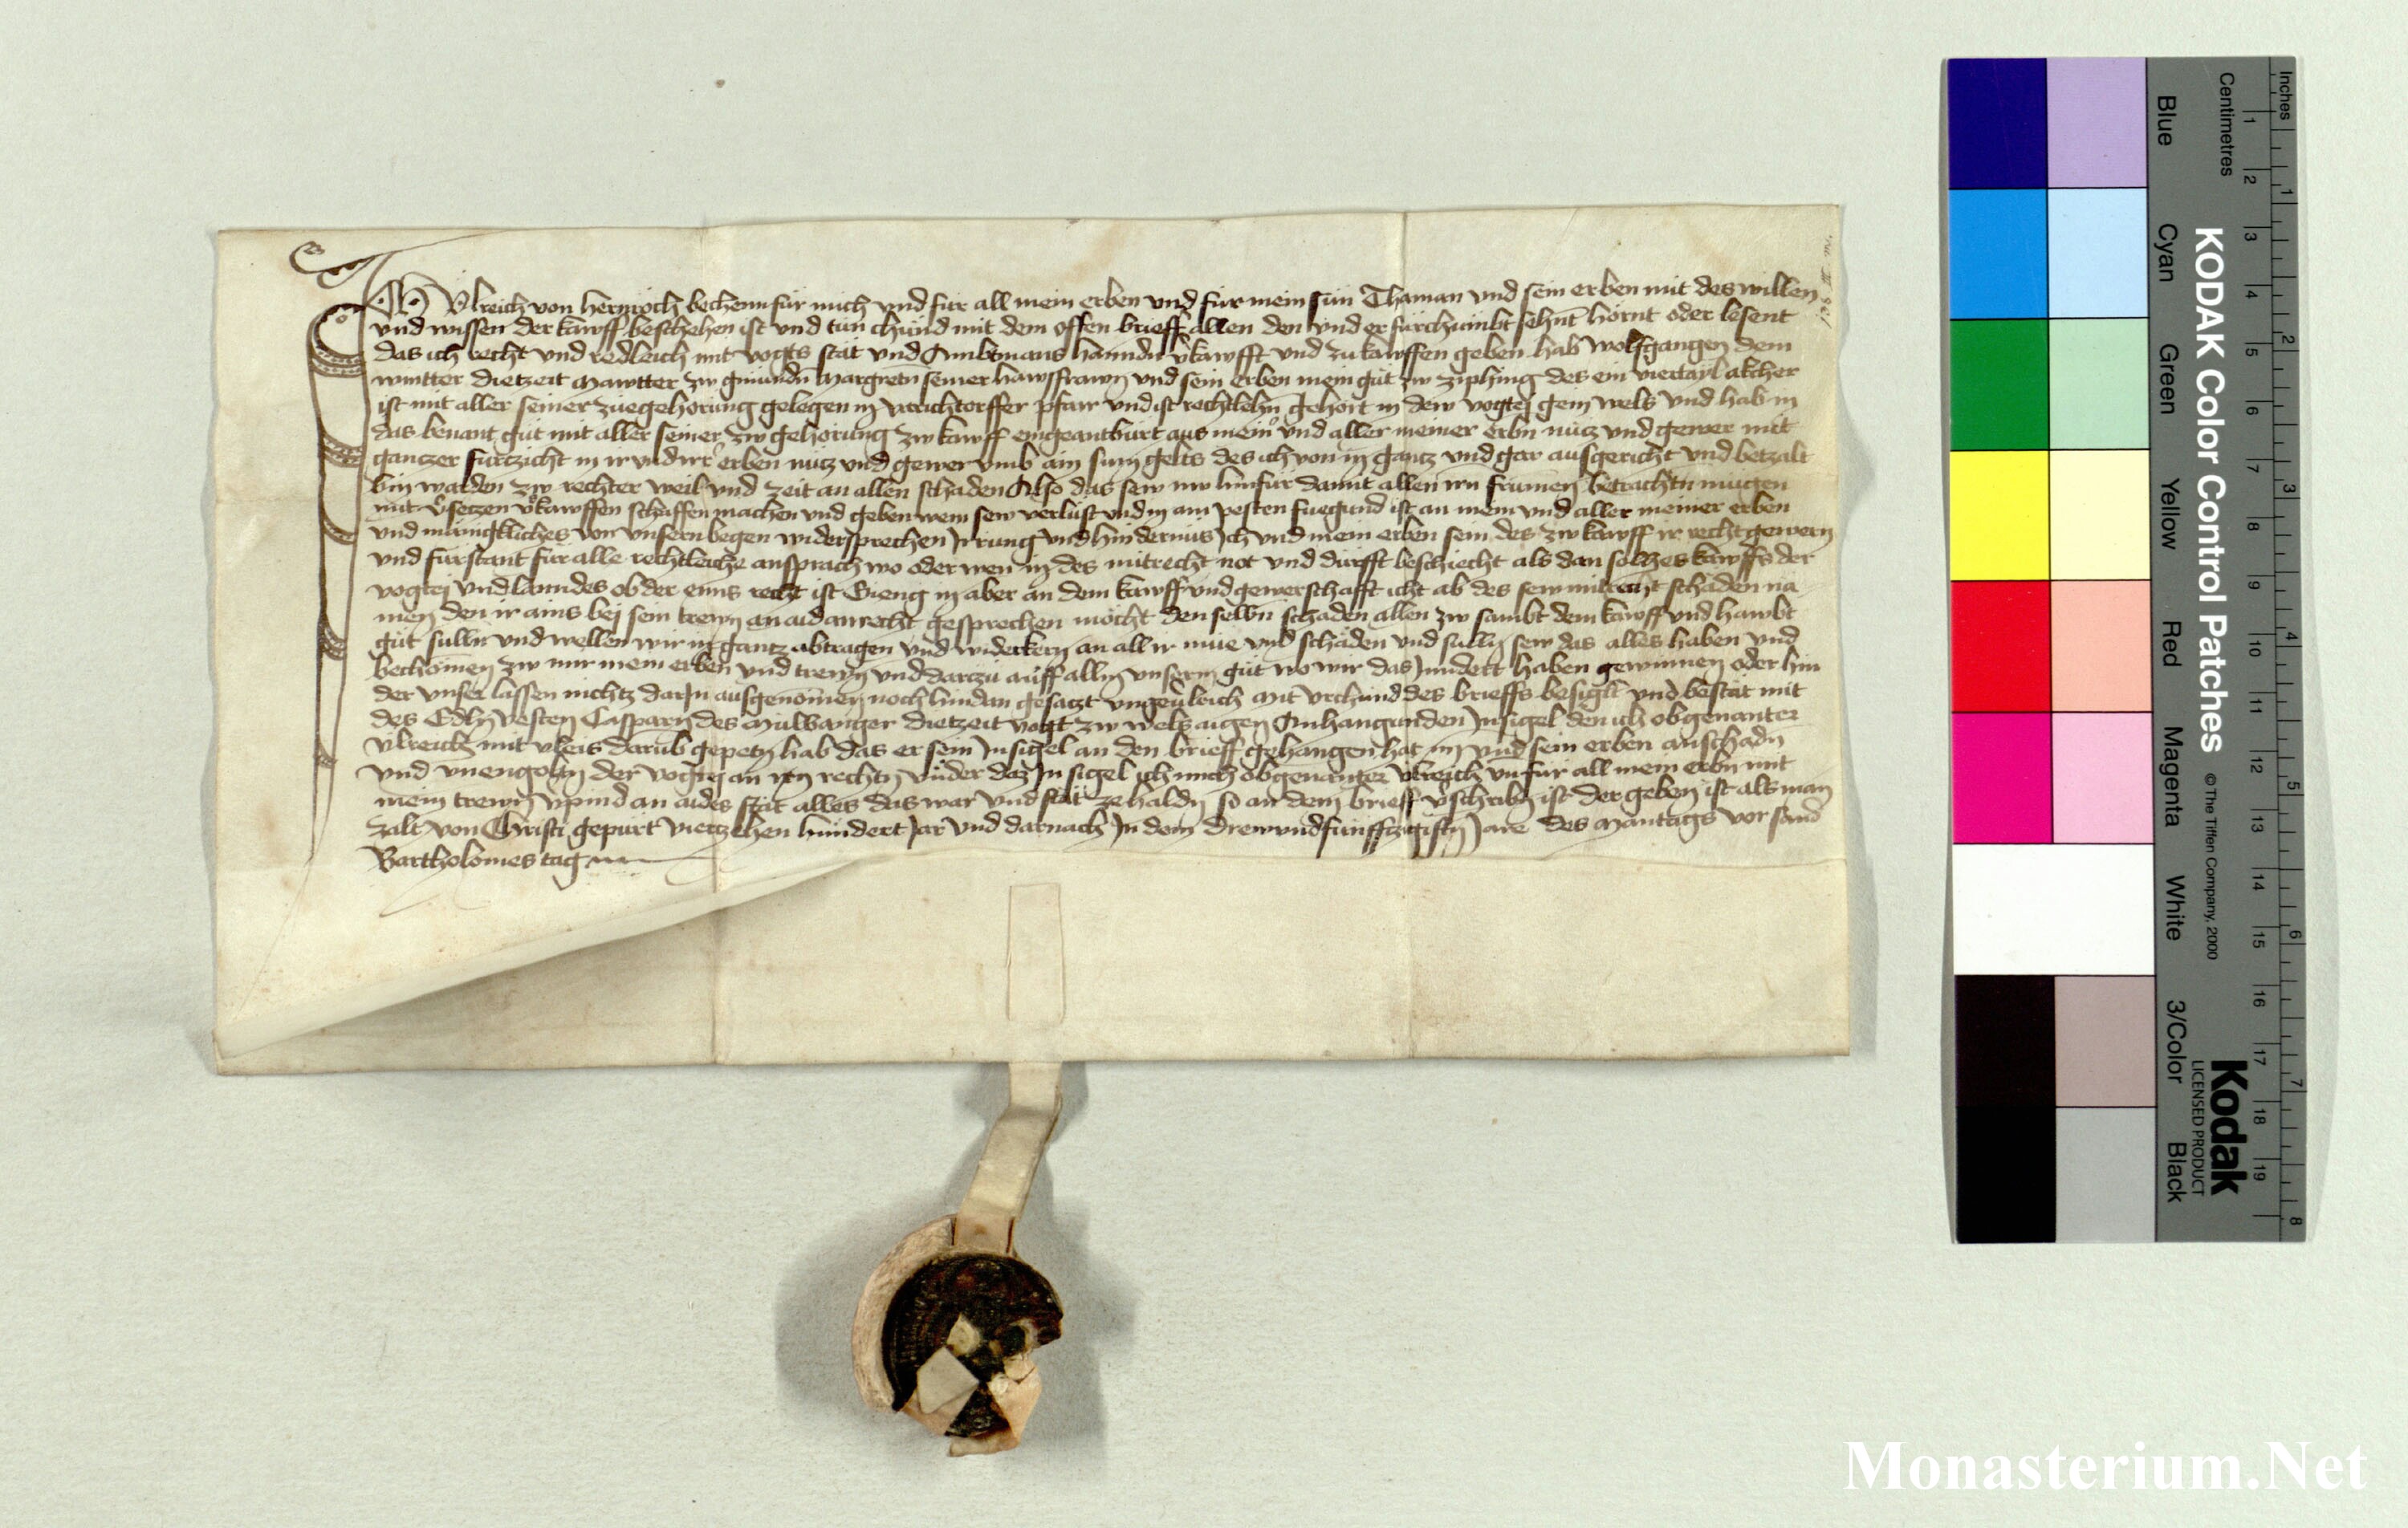 Ich Ulreich von hermoch bechenn für mich und für all mein erben und für mein sün Thaman und sein erben mit des willen
und wissen der kawff beschehen ist und tün chünd mit dem offen brieff allen den und er fürchümbt sehnt hörnt oder lesent
das ich recht und redleich mit vogts stat und Ambtmans hanndn vkawfft und zu kawffen geben hab wolfgangen dem
wintter dietzeit mawtter zw gmündn margretn seiner hawsfrawn und sein erben mein güt zw ziphing des ein viertayl akcher
ist mit aller seiner züegehörüng gelegen in pfarr und ist rechtlehn gehört in dew vogtej gem wels und hab in
das benant güt mit aller seiner zw gehörüng zw kawff eingeantbürt aus meinr und aller meiner erbn nücz und gewer mit
ganczer fürczicht in ir und irr erben nücz und gewer umb ain sum gelts des ich von in gantz und gar ausgericht und betzalt
bin warden zw rechter weil und zeit an allen schaden Also das sew nw hinfür damit allen irn frümen betrachtn mügen
mit vsetzen vkawffen schaffen machen und geben wem sew verlüst und in am pesten fuegünd ist an mein und aller meiner erben
und mänigkliches von unsern begen widersprechen Irrung und hindernüs Ich und mein erben sein des zw kawff ir recht gewern
und fürstant für alle rechtleiche ansprach wo oder wen in des mitrecht not und dürfft beschiecht als dan solhes kawffs der
vogtej und lanndes ob der enns recht ist Gieng in aber an dem kawff und gewerschafft icht ab des sew mit recht schaden na
men den ir ains bej sein trewn an aid anrecht gesprechen möcht den selbn schaden allen zw sambt dem kawff und hawbt
güt sülln und wellen wir in gantz abtragen und widerkern an all ir müe und schäden und sülln sew das alles haben und
bechömen zw mir mein erben und trewn und darczü aüff alln unserm güt wo wir das Inndert haben gewinnen oder hin
der unser lassen nichtz darIn ausgenömen noch hindan gesaczt ungevleich mit urchünd des brieffs besiglt und bestät mit
des Edln vesten Casparn des mülwanger dietzeit vogt zw wels aigen Anhangunden Insigel den ich obgenanter
Ulreich mit vleis darüb gepetn hab das er sein Insigel an den brieff gehangen hat im und sein erben anschadn
und unengoltn der vogtej an irn rechtn under daz Insigel ich mich obgenanter Ulreich un für all mein erbn mit
mein trewn vpind an aides stat alles das war und stät ze haldn so an dem brieff vschribn ist der geben ist als man
zalt von Christi gepürt vierczehen hündert Jar und darnach In dem drewundfünffczigistn Jare des mäntags vor sand
Bartholomes tag
KODAK Color Control Patches
© The Tiffen Company, 2000
Kodak
LICENSED PRODUCT
Inches
Centimetres
1 2 3 4 5 6 7 8 9 10 11 12 13 14 15 16 17 18 19
1 2 3 4 5 6 7 8
Blue
Cyan
Green
Yellow
Red
Magenta
White
3/Color
Black
Monasterium.Net